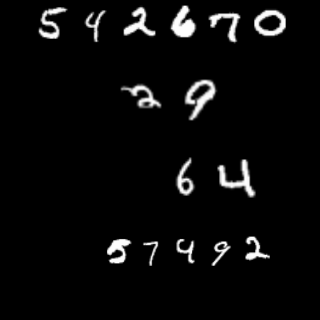 542670
29
64
57492